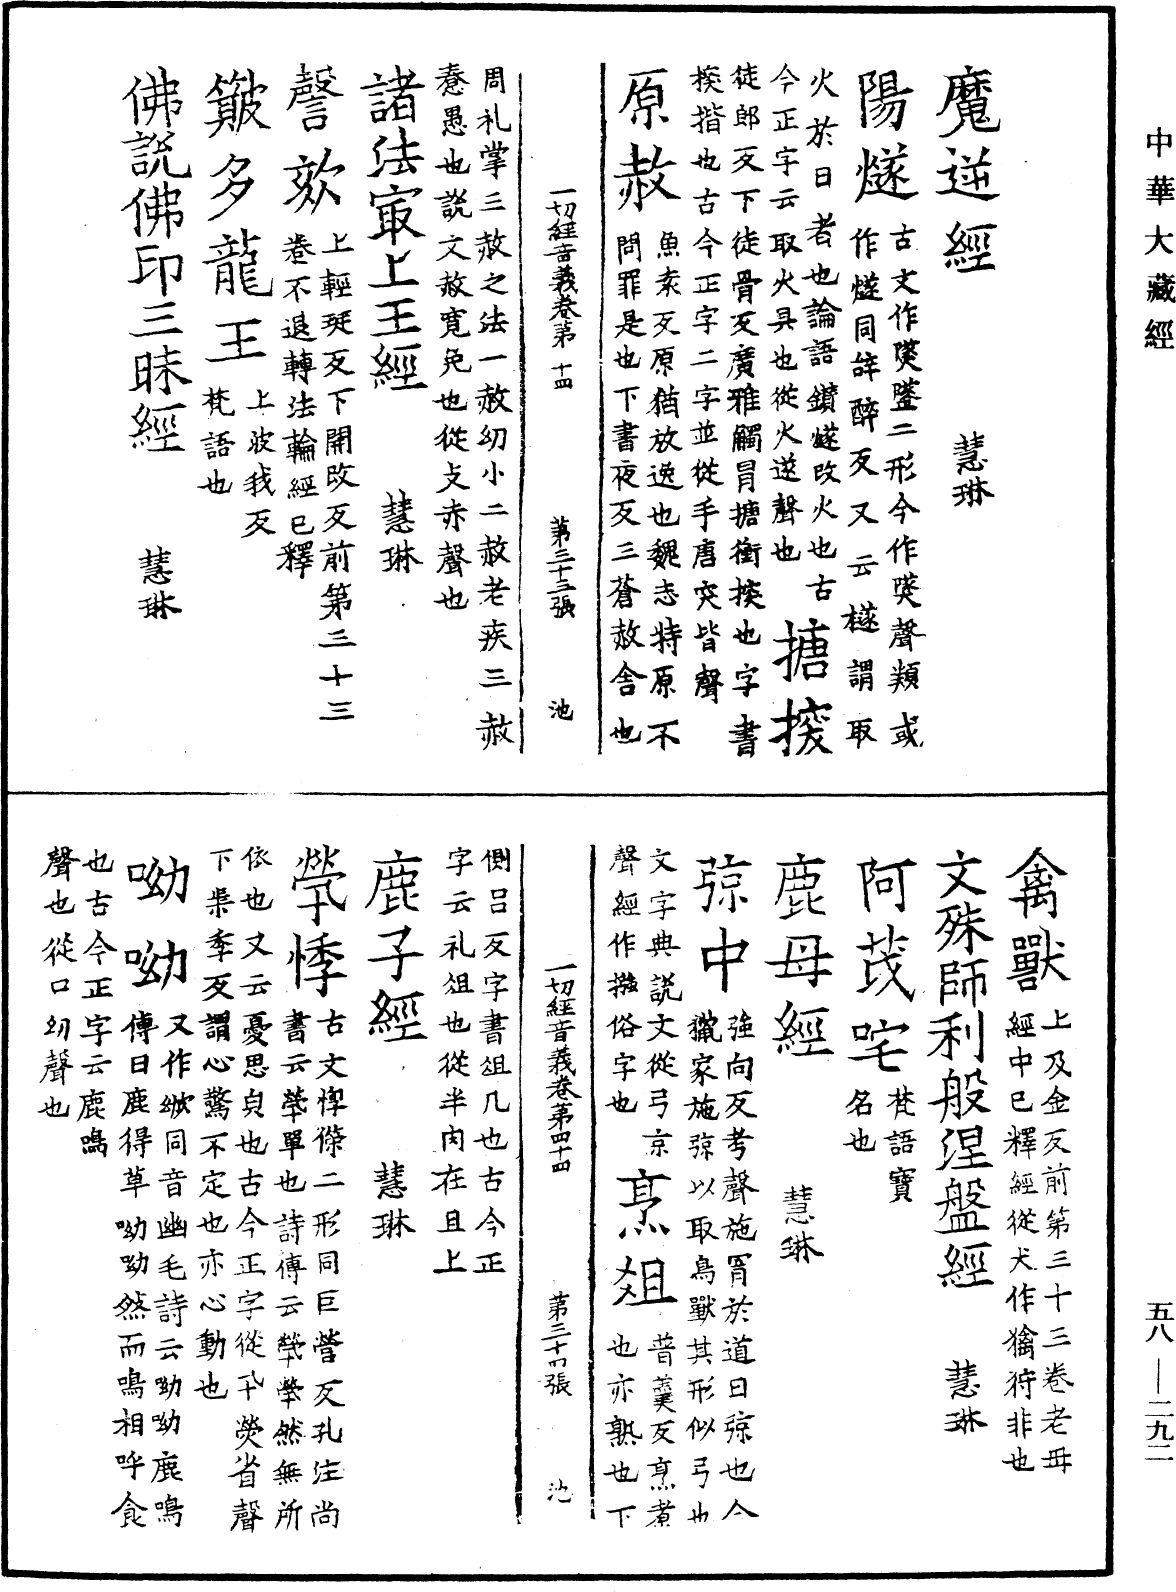 中華大藏經
魔逆經　慧琳
陽燧　古文作䥙鐆二形今作㷭聲類或
作燧同辝醉反又云檖謂取
火於日者也論語鑽燧改火也古
今正字云取火具也從火遂聲也
搪揬
徒郎反下徒骨反廣雅觸冒搪衝揬也字書
揬揩也古今正字二字並從手唐突皆聲
原赦　魚袁反原猶放逸也魏志特原不
問罪是也下書夜反三蒼赦舍也
一切經音義卷第四十四　第三十三張　池
周礼掌三赦之法一赦幼小二赦老疾三赦
憃愚也說文赦寬免也從攴赤聲也
諸法㝡上王經　慧琳
謦欬　上輕㹂反下開改反前第三十三
卷不退轉法輪經已釋
簸多龍王　上波我反
梵語也
佛說佛印三昧經　慧琳
禽獸　上及金反前第三十三卷老母
經中已釋經從犬作㺒狩非也
文殊師利般涅盤經　慧琳
阿茂吒　梵語寶
名也
鹿母經　慧琳
弶中　強向反考聲施罥於道曰弶也今
獵家施弶以取鳥獸其形似弓也
文字典說文從弓京
聲經作摾俗字也
烹俎　普羹反烹煮
也亦熟也下
一切經音義卷第四十四　第三十四張　池
側呂反字書俎几也古今正
字云礼俎也從半肉在且上
鹿子經　慧琳
煢悸　古文惸傑二形同巨營反孔注尚
書云煢單也詩傳云煢煢然無所
依也又云憂思皃也古今正字從卂熒省聲
下渠季反謂心驚不定也亦心動也
呦呦　又作㕱同音幽毛詩云呦呦鹿鳴
傳曰鹿得草呦呦然而鳴相呼食
也古今正字云鹿鳴
聲也從口幼聲也
五八—二九二